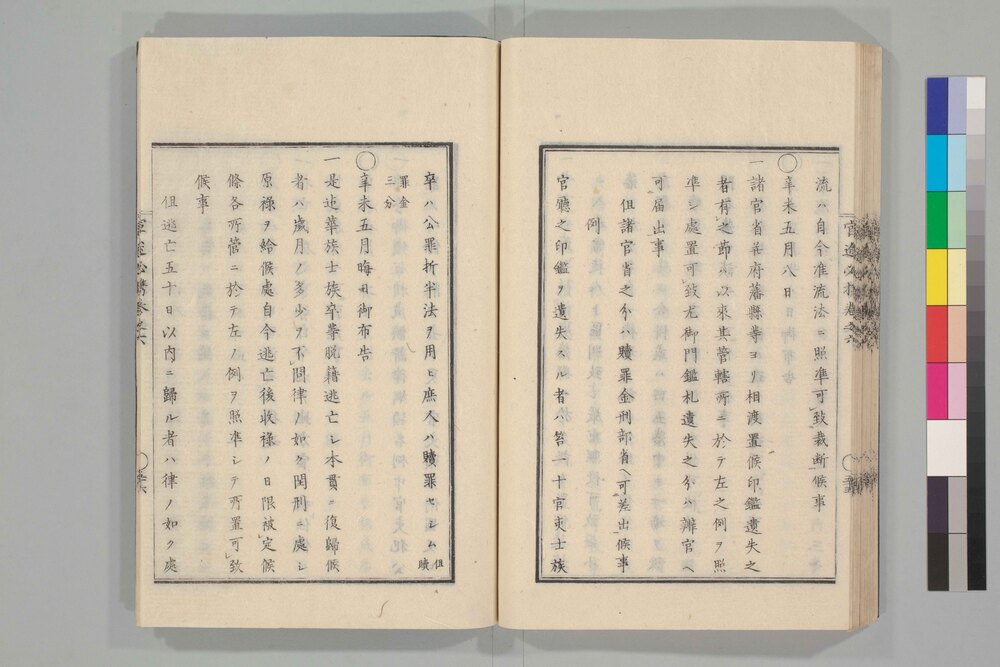 流ハ自今准流法ニ照準可致裁断候事
○辛未五月八日御布告
一諸官省寮府藩縣等ヨリ相渡置候印鑑遺失之
者有之節ハ以来其管轄所ニ於テ左之例ヲ照
準シ處置可致尤御門鑑札遺失之分ハ辨官ヘ
可届出事
但諸官省之分ハ贖罪金刑部省ヘ可差出候事
例
官廳之印鑑ヲ遺失スル者ハ笞一十官吏士族
卒ハ公罪折半法ヲ用ヒ庶人ハ贖罪セシム但贖
罪金三分
○辛未五月晦日御布告
一是迄華族士族卒等脱籍逃亡シ本貫ニ復歸候
者ハ歳月ノ多少ヲ不問律ノ如ク閏刑ニ處シ
原禄ヲ給候處自今逃亡後收禄ノ日限被定候
條各所管ニ於テ左ノ例ヲ照準シテ所置可致
候事
但逃亡五十日以内ニ歸ル者ハ律ノ如ク處